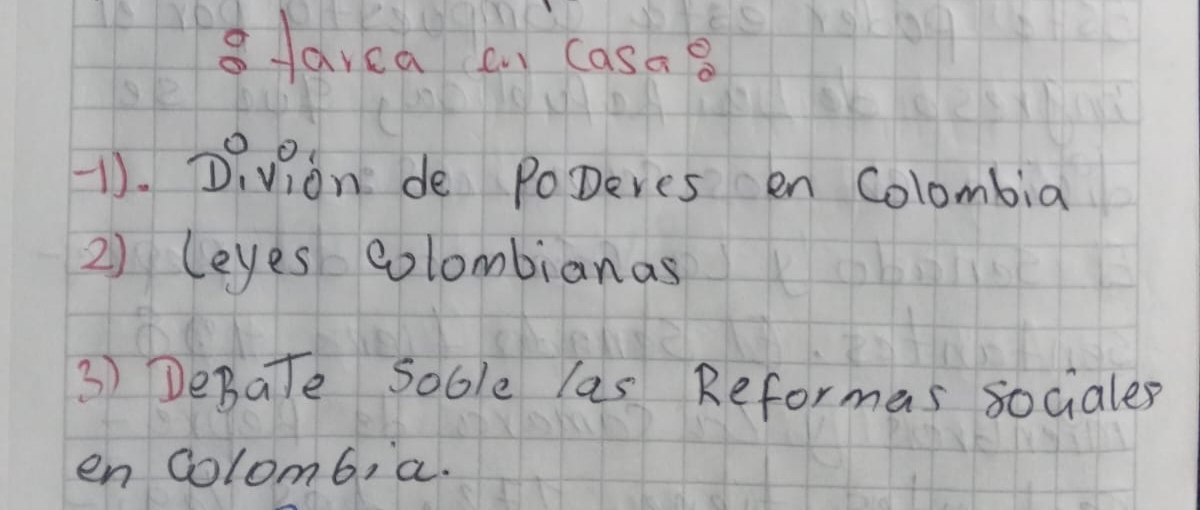 : tarea en Casa:
-1). Divión de PoDeres en Colombia
2) Leyes Colombianas
3) DeBaTe Soble las Reformas sociales
en Colombia.